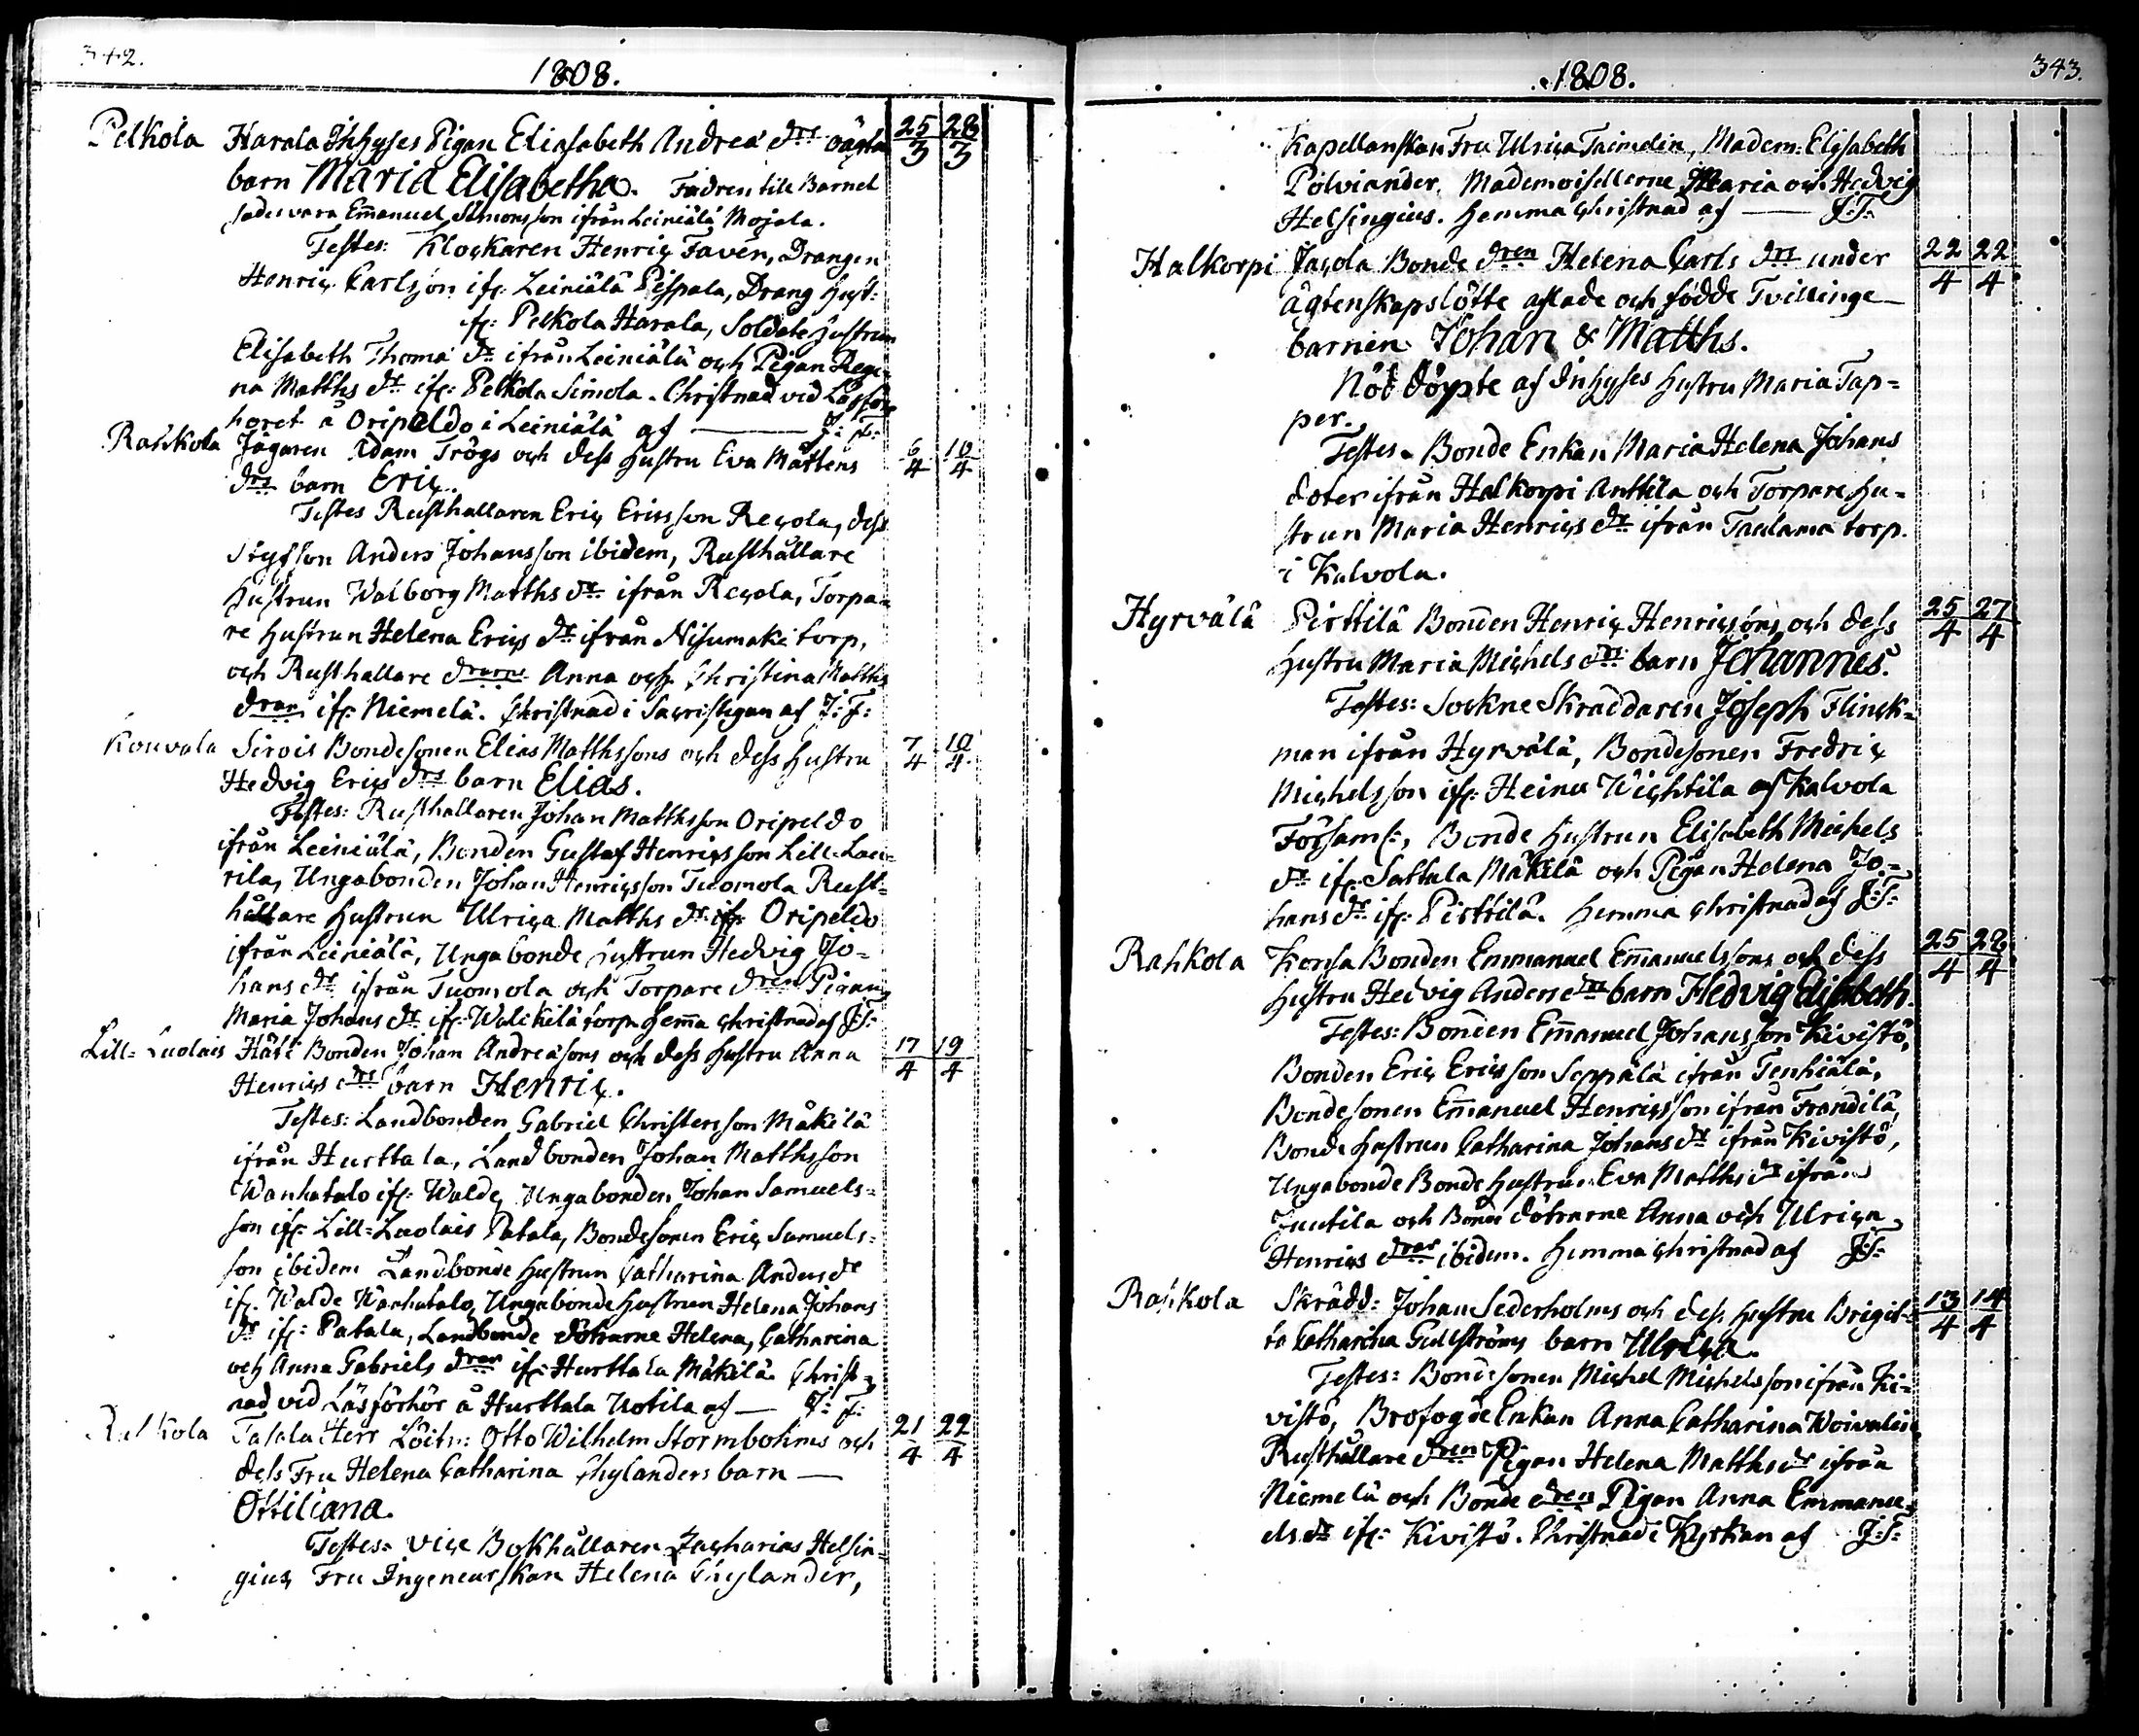 342.
1808.
Pelkola Harala Inhyses Pigan Elisabeth Andreæ drs oägta 25/3 28/3
barn Maria Elisabetha. Fadren till Barnet
sades vara Em̄anuel Simonsson ifrån Leiniälä Mojala.
Testes: Klockaren Henric Favén, Drängen
Henric Carlsson ifr: Leiniälä Pispala, Dräng Hust:
ifr: Pelkola Harala, Soldate Hustrun
Elisabeth Thomæ dr ifrån Leiniälä och Pigan Regi-
na Matths dr ifr: Pelkola Simola. Christnad vid Läsför
höret å Oripeldo i Leiniälä af — J: F:
Rahkola Jägaren Adam Trögs och dess Hustru Eva Mårtens 6/4 10/4
drs barn Eric.
Testes Rusthållaren Eric Ericsson Recola, dess
Styfson Anders Johansson ibidem, Rusthållare
Hustrun Walborg Matths dr ifrån Recola, Torpa-
re Hustrun Helena Erics dr ifrån Nisumaki torp,
och Rusthållare drarne Anna och Christina Matths
drar ifr: Niemelä. Christnad i Sacristigan af J: F:
Konvala Sirois Bondesonen Elias Matthssons och dess Hustru 7/4 10/4
Hedvig Erics drs barn Elias.
Testes: Rusthållaren Johan Matthsson Oripeldo
ifrån Leiniälä, Bonden Gustaf Henricsson Lill-Lau-
rila, Ungabonden Johan Henricsson Tuomola Rust-
hållare Hustrun Ulrica Matths dr ifr Oripeldo
ifrån Leiniälä, Ungabonde Hustrun Hedvig Jo-
hans dr ifrån Tuomola och Torpare dren Pigan
Maria Johans dr ifr: Walikilä torp. Hem̄a Christnad af J:F:
Lill-Luolais Häti Bonden Johan Andreæsons och dess Hustru Anna 17/4 19/4
Henrics drs barn Henric.
Testes: Landbonden Gabriel Christersson Mäkilä
ifrån Hurttala, Landbonden Johan Matthsson
Wanhatalo ifr: Walde, Ungabonden Johan Samuels-
son ifr: Lill-Luolais Patala, Bondesonen Eric Samuels-
son ibidem Landbonde Hustrun Catharina Anders dr
ifr: Walde Wanhatalo, Ungabonde Hustrun Helena Johans
dr ifr: Patala, Landbonde dötrarne Helena, Catharina
och Anna Gabriels drar ifr: Hurttala Mäkilä. Christ-
nad vid Läsförhör å Hurttala Uotila af — J: F:
Rahkola Tasala Herr Löitn: Otto Wilhelm Stormbohms och 21/4 22/4
dess Fru Helena Catharina Chylanders barn —
Ottiliana.
Testes: Vice Bokhållaren Zacharias Helsin-
gius, Fru Ingeneurskan Helena Chylander,
343.
1808.
Kapellanskan Fru Ulrica Taimelin, Madem: Elisabeth
Polviander, Mademoisellerne Maria och Hedvig
Helsingius. Hemma Christnad af — J:F:
Halkorpi Jacola Bonde dren Helena Carls drs under 22/4 22/4
ägtenskapslöfte aflade och födde Tvillinge-
barnen Johan & Matths.
Nöd döpte af Inhyses Hustru Maria Tap-
per.
Testes. Bonde Enkan Maria Helena Johans
doter ifrån Halkorpi Anttila och Torpare Hu-
strun Maria Henrics dr ifrån Taulama torp.
i Kalvola.
Hyrvälä Pirttilä Bonden Henric Henricsons och dess 25/4 27/4
Hustru Maria Michels drs barn Johannes.
Testes: Sockne Skräddaren Joseph Flinck-
man ifrån Hyrvälä, Bondesonen Fredric
Michelsson ifr: Heinu Wichtila af Kalvola
Församl:, Bonde Hustrun Elisabeth Michels
dr ifr: Sattula Mäkilä och Pigan Helena Jo-
hans dr ifr: Pirttilä. Hemma Christnad af J:F:
Rahkola Konsa Bonden Emmanuel Em̄anuelssons och dess 25/4 28/4
Hustru Hedvig Anders drs barn Hedvig Elisabeth.
Testes: Bonden Em̄anuel Johansson Kivistö,
Bonden Eric Ericsson Seppälä ifrån Tenhiälä,
Bondesonen Em̄anuel Henricsson ifrån Frandilä,
Bonde Hustrun Catharina Johans dr ifrån Kivistö,
Ungabonde Bonde Hustrun Eva Matths dr ifrån
Juutila och Bonde dötrarne Anna och Ulrica
Henrics drar ibidem. Hemma Christnad af J:F:
Rahkola Skrädd: Johan Sederholms och dess Hustru Brigit- 13/4 14/4
ta Catharina Gullströms barn Ulrica.
Testes: Bondesonen Michel Michelsson ifrån Ki-
vistö, Brofogde Enkan Anna Catharina Woivalin
Rusthållare dren Pigan Helena Matths dr ifrån
Niemelä och Bonde dren Pigan Anna Emmanu-
els dr ifr: Kivistö. Christnad i Kyrkan af J:F: